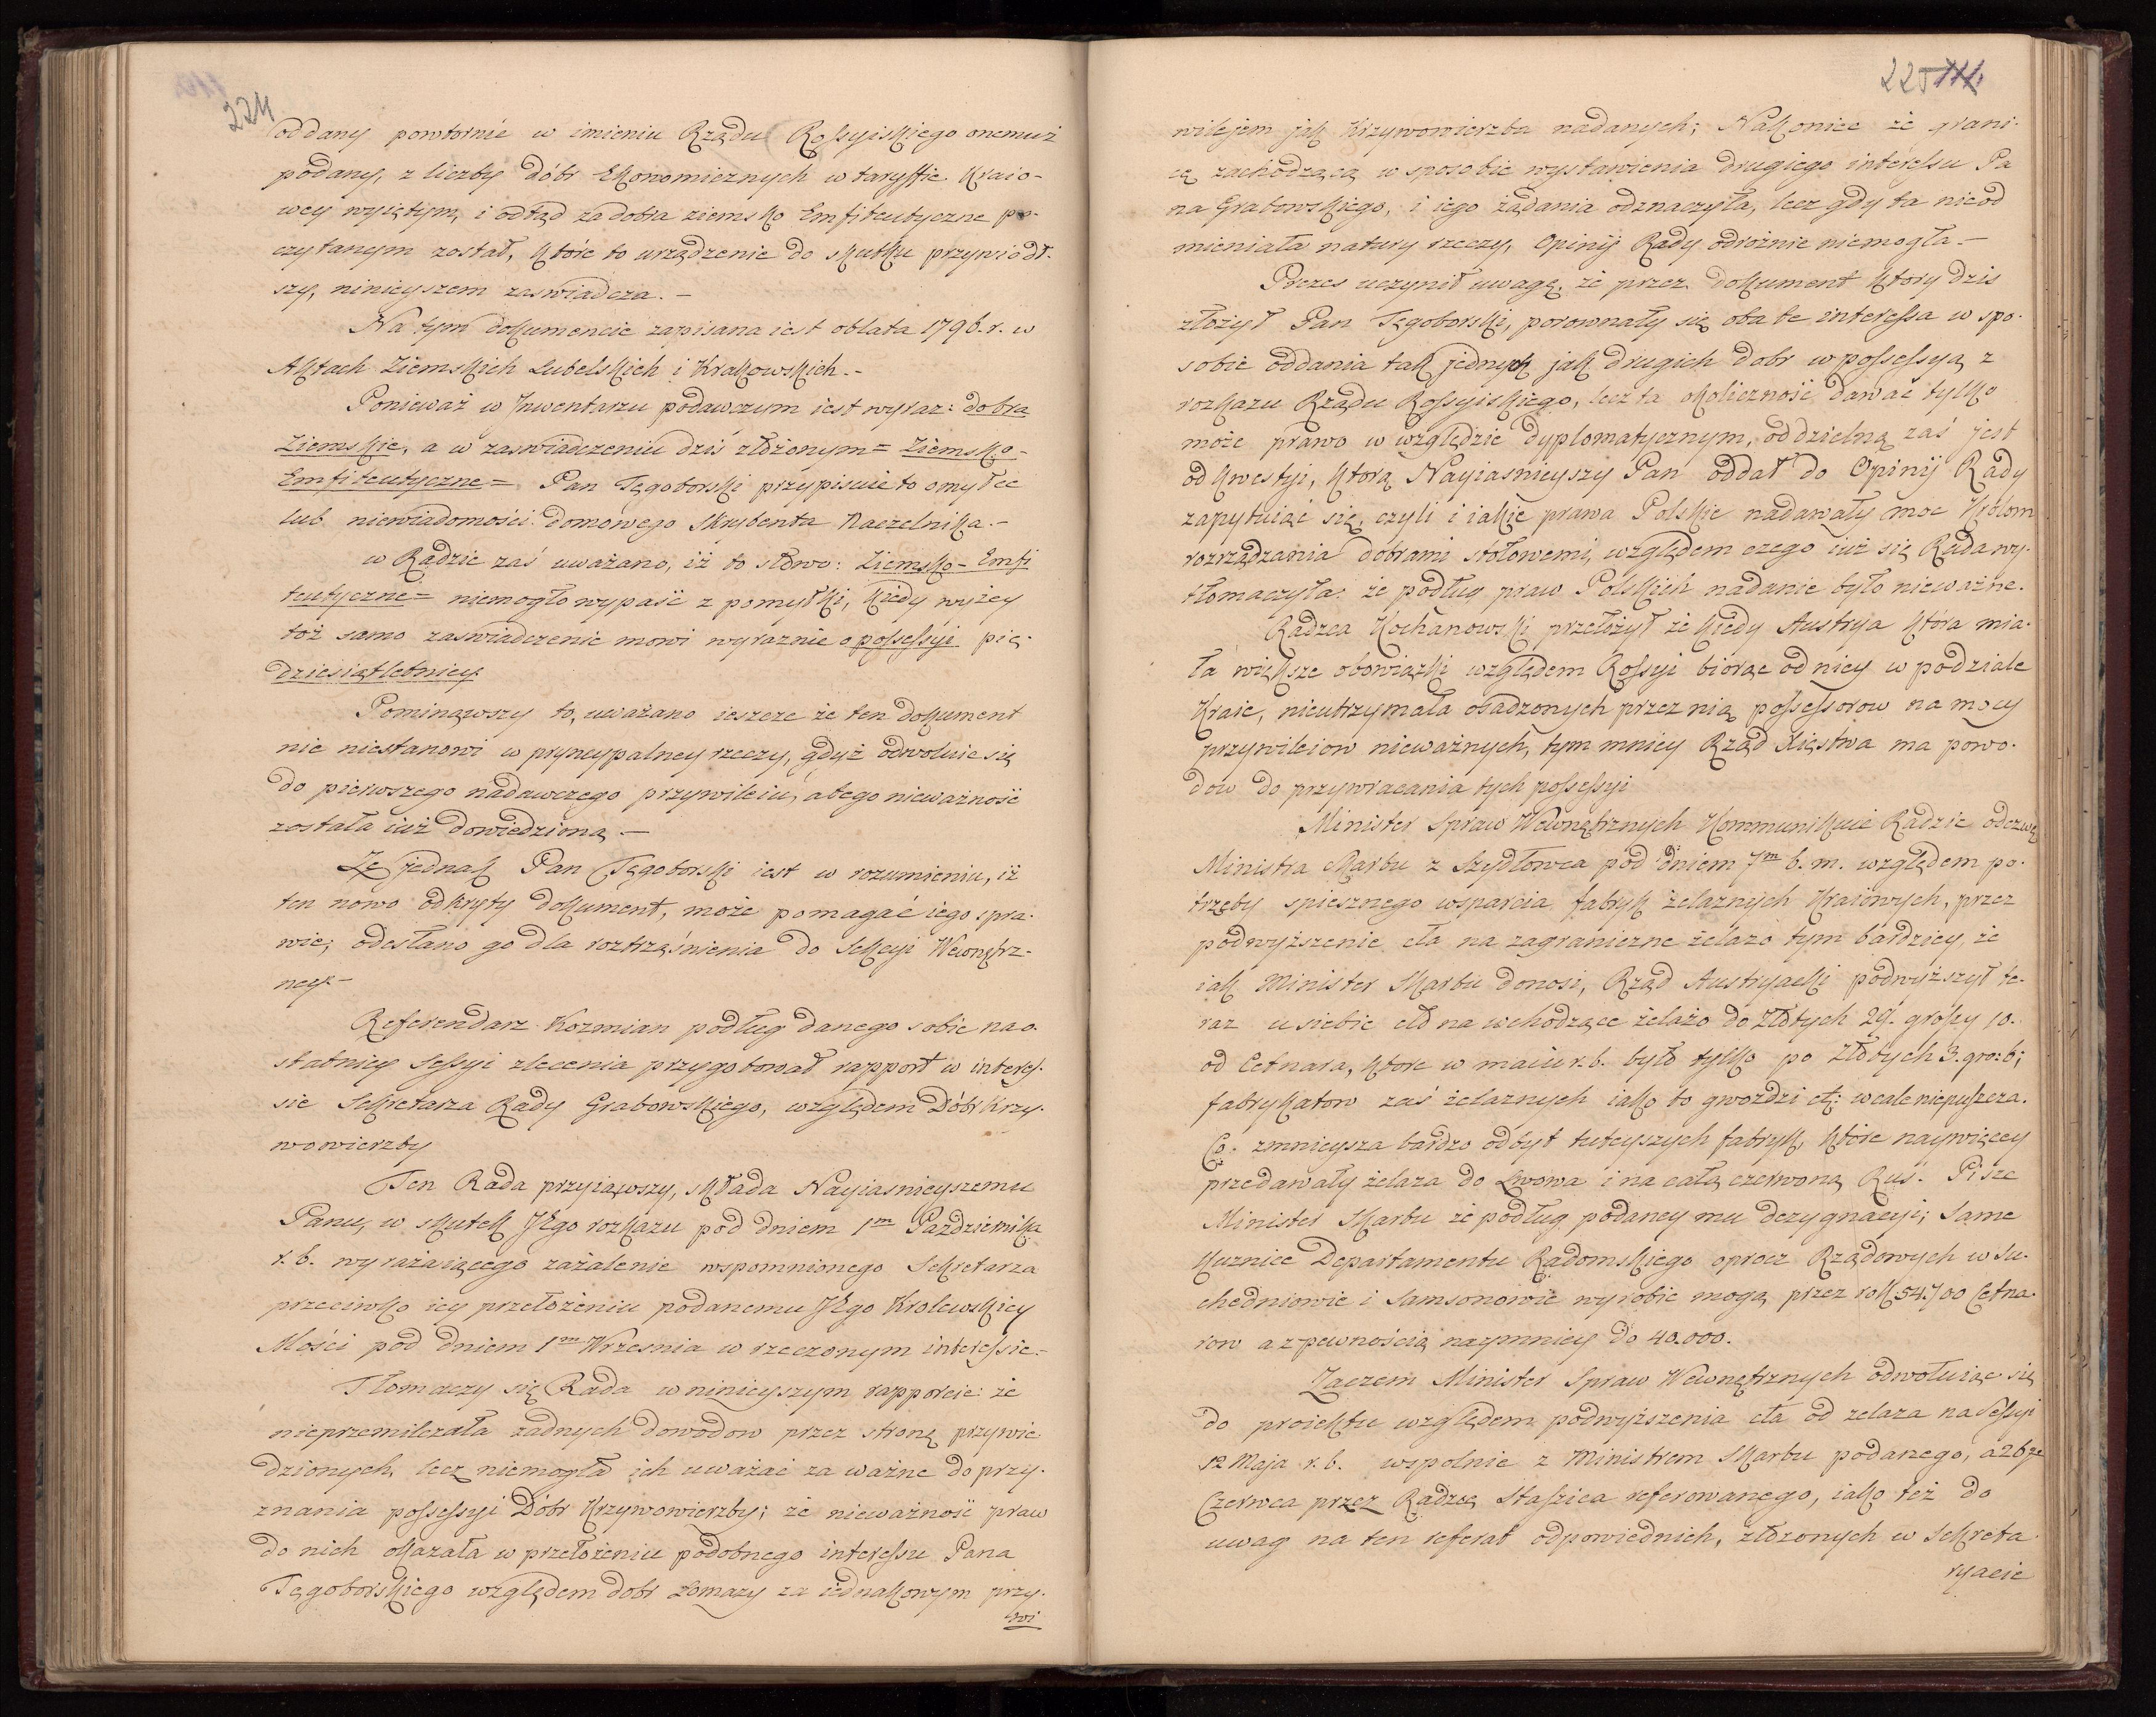 224
oddany powtornie w imieniu Rządu Rossyiskiego onemuż
podany, z liczby dóbr Ekonomicznych w taryffie Kraio-
wey wyiętym, i odtąd za dobra ziemsko Emfiteutyczne po-
czytanym został, które to urządzenie do skutku przywiódł-
szy, ninieyszem zaswiadcza. –
Na tym dokumencie zapisana iest oblata 1796. r. w
Aktach Ziemskich Lubelskich i Krakowskich. –
Ponieważ w Jnwentarzu podawczym iest wyraz: dobra
Ziemskie, a w zaswiadczeniu dziś złożonym = Ziemsko-
Emfiteutyczne = Pan Tęgoborski przypisuie to omyłce
lub niewiadomości domowego Skrybenta Naczelnika. –
w Radzie zaś uważano, iż to słowo: Ziemsko- Emfi
teutyczne = niemogło wypaść z pomyłki, kiedy wyżey
toż samo zaswiadczenie mowi wyraznie o possessyi pię-
dziesiątletniey
Pominąwszy to, uważano ieszcze że ten dokument
nic niestanowi w pryncypalney rzeczy, gdyż odwołuie się
do pierwszego nadawczego przywileiu, a tego nieważność
została iuż dowiedzioną –
Że jednak Pan Tęgoborski iest w rozumieniu, iż
ten nowo odkryty dokument, może pomagać iego spra-
wie; odesłano go dla roztrząśnienia do Sekcyi Wewnętrz-
ney –
Referendarz Kozmian podług danego sobie na o-
statniey Sessyi zlecenia przygotował rapport w interes-
sie Sekretarza Rady Grabowskiego, względem Dóbr Krzy-
wowierzby
Ten Rada przyiąwszy, składa Nayiasnieyszemu
Panu, w skutek JEgo rozkazu pod dniem 1m Pazdziernika
r. b. wyrażaiącego zażalenie wspomnionego Sekretarza
przeciwko iey przełożeniu podanemu JEgo Krolewskiey
Mości pod dniem 1m Wrzesnia w rzeczonym interessie –
Tłomaczy się Rada w ninieyszym rapporcie: że
nieprzemilczała żadnych dowodow przez stronę przywie
dzionych, lecz niemogła ich uważać za ważne do przy-
znania possessyi Dóbr Krzywowierzby; że nieważność praw
do nich okazała w przełożeniu podobnego interessu Pana
Tęgoborskiego względem dobr Łomazy za iednakowym przy-
wi
225
wilejem jak Krzywowierzba nadanych; Nakoniec że grani-
cę zachodzącą w sposobie wystawienia drugiego interessu Pa
na Grabowskiego, i iego żądania odznaczyła, lecz gdy ta nieod
mieniała natury rzeczy, Opinij Rady odróżnie niemogła –
Prezes uczynił uwagę, że przez dokument ktory dzis
złożył Pan Tęgoborski, porownały się oba te interessa w spo-
sobie oddania tak jednych jak drugich dobr w possessyą z
rozkazu Rządu Rossyiskiego, lecz ta okoliczność dawać tylko
może prawo w względzie dyplomatycznym, oddzielną zaś jest
od kwestyi, którą Nayiasnieyszy Pan oddał do Opinij Rady
zapytuiąc się, czyli i iakie prawa Polskie nadawały moc Królom
rozrządzania dobrami stołowemi, względem czego iuż się Rada wy-
tłomaczyła: że podług praw Polskich nadanie było nieważne.
Radzca Kochanowski przełożył że kiedy Austrya która mia-
ła większe obowiązki względem Rossyi biorąc od niey w podziale
Kraie, nieutrzymała osadzonych przez nią possessorow na mocy
przywileiow nieważnych, tym mniey Rząd Xięstwa ma powo-
dow do przywracania tych possessyi
Minister Spraw Wewnętrznych Kommunikuie Radzie odezwę
Ministra Skarbu z Szydłowca pod dniem 7m b. m. względem po-
trzeby spiesznego wsparcia fabryk żelaznych Kraiowych, przez
podwyższenie cła na zagraniczne żelazo tym bardziey, że
iak Minister Skarbu donosi, Rząd Austryacki podwyższył te-
raz u siebie cło na wchodzące żelazo do Złotych 29. groszy 10.
od Cetnara, które w maiu r. b. było tylko po Złotych 3. gro: 6;
fabrykatow zaś żelaznych iako to gwozdzi etc: wcale niepuszcza.
Co zmnieysza bardzo odbyt tuteyszych fabryk, które naywięcey
przedawały żelaza do Lwowa i na całą czerwoną Ruś. Pisze
Minister Skarbu że podług podaney mu dezygnacyi; same
Kuznice Departamentu Radomskiego oprocz Rządowych w Su-
chedniowie i Samsonowie wyrobic mogą przez rok 54.700 Cetna-
row a z pewnością naymniey do 40.000.
Zaczem Minister Spraw Wewnętrznych odwołuiąc się
do proiektu względem podwyższenia cła od zelaza na Sessyi
12 Maja r. b. wspolnie z Ministrem Skarbu podanego, a 26go
Czerwca przez Radzcę Staszica referowanego, iako też do
uwag na ten referat odpowiednich, złożonych w Sekreta
ryacie